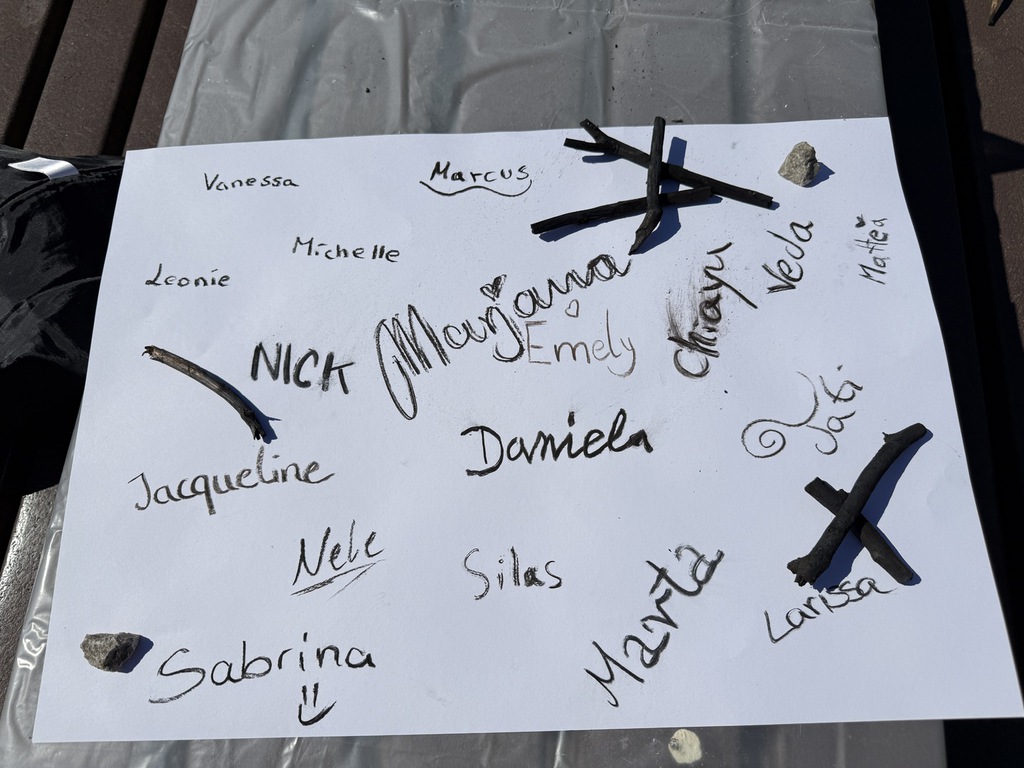 Vanessa
Marcus
Michelle
Leonie
Marjana
Veda
Mattea
NICK
Emely
Daniela
Tati
Jacqueline
Nele
Silas
Marta
Larissa
Sabrina